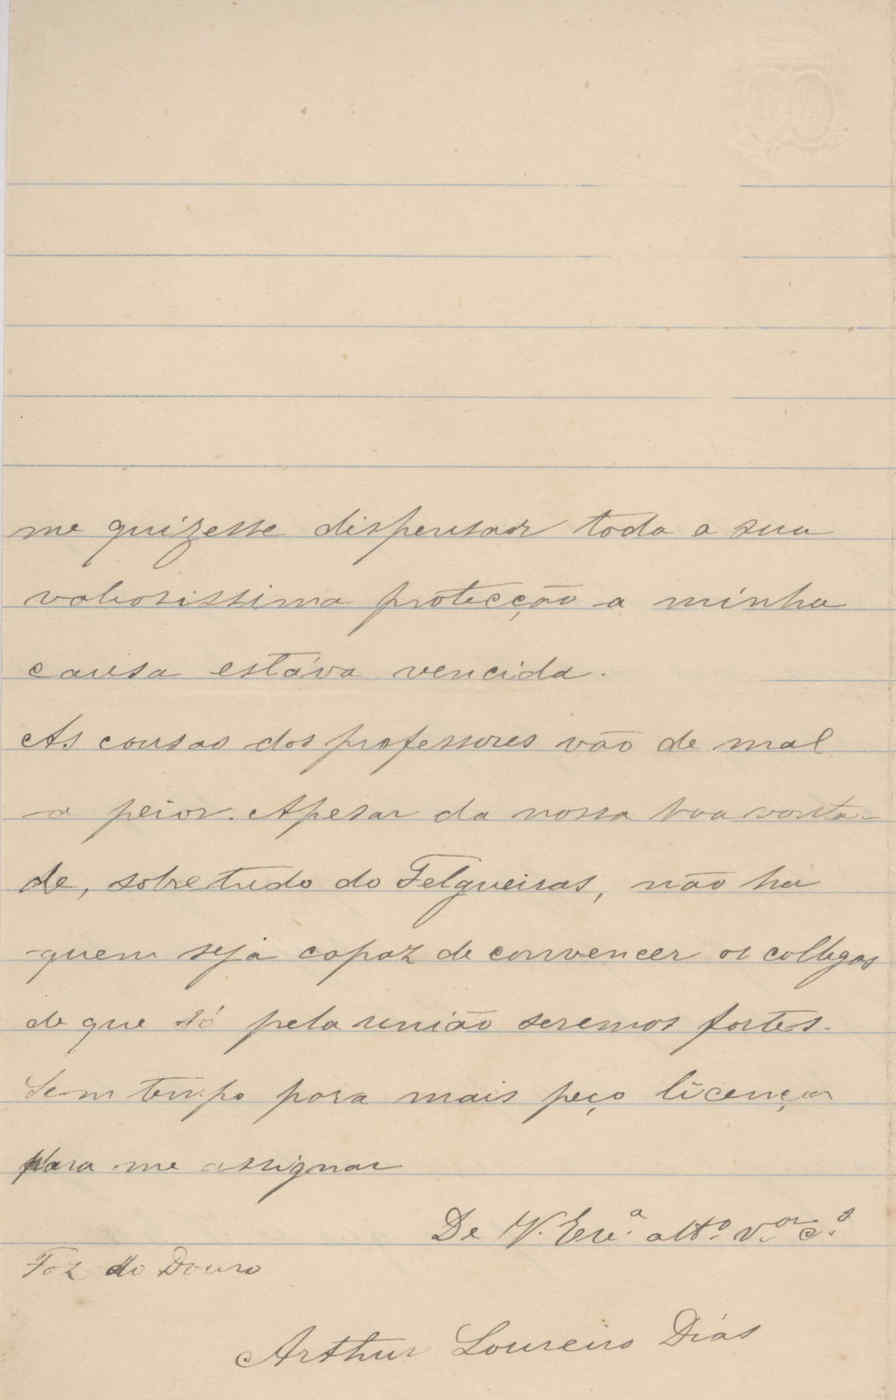 me quizesse dispensar toda a sua
valiosissima protecção a minha
causa estáva vencida.
As cousas dos professores vão de mal
a peior. Apesar da nossa boa vonta-
de, sobretudo do Felgueiras, não ha
quem seja capaz de convencer os collegas
de que só pela união seremos fortes.
Sem tempo para mais peço licença
para me assignar
De V. Exᵃ. attº. v.ᵒʳ c.º
Foz do Douro
Arthur Loureiro Dias